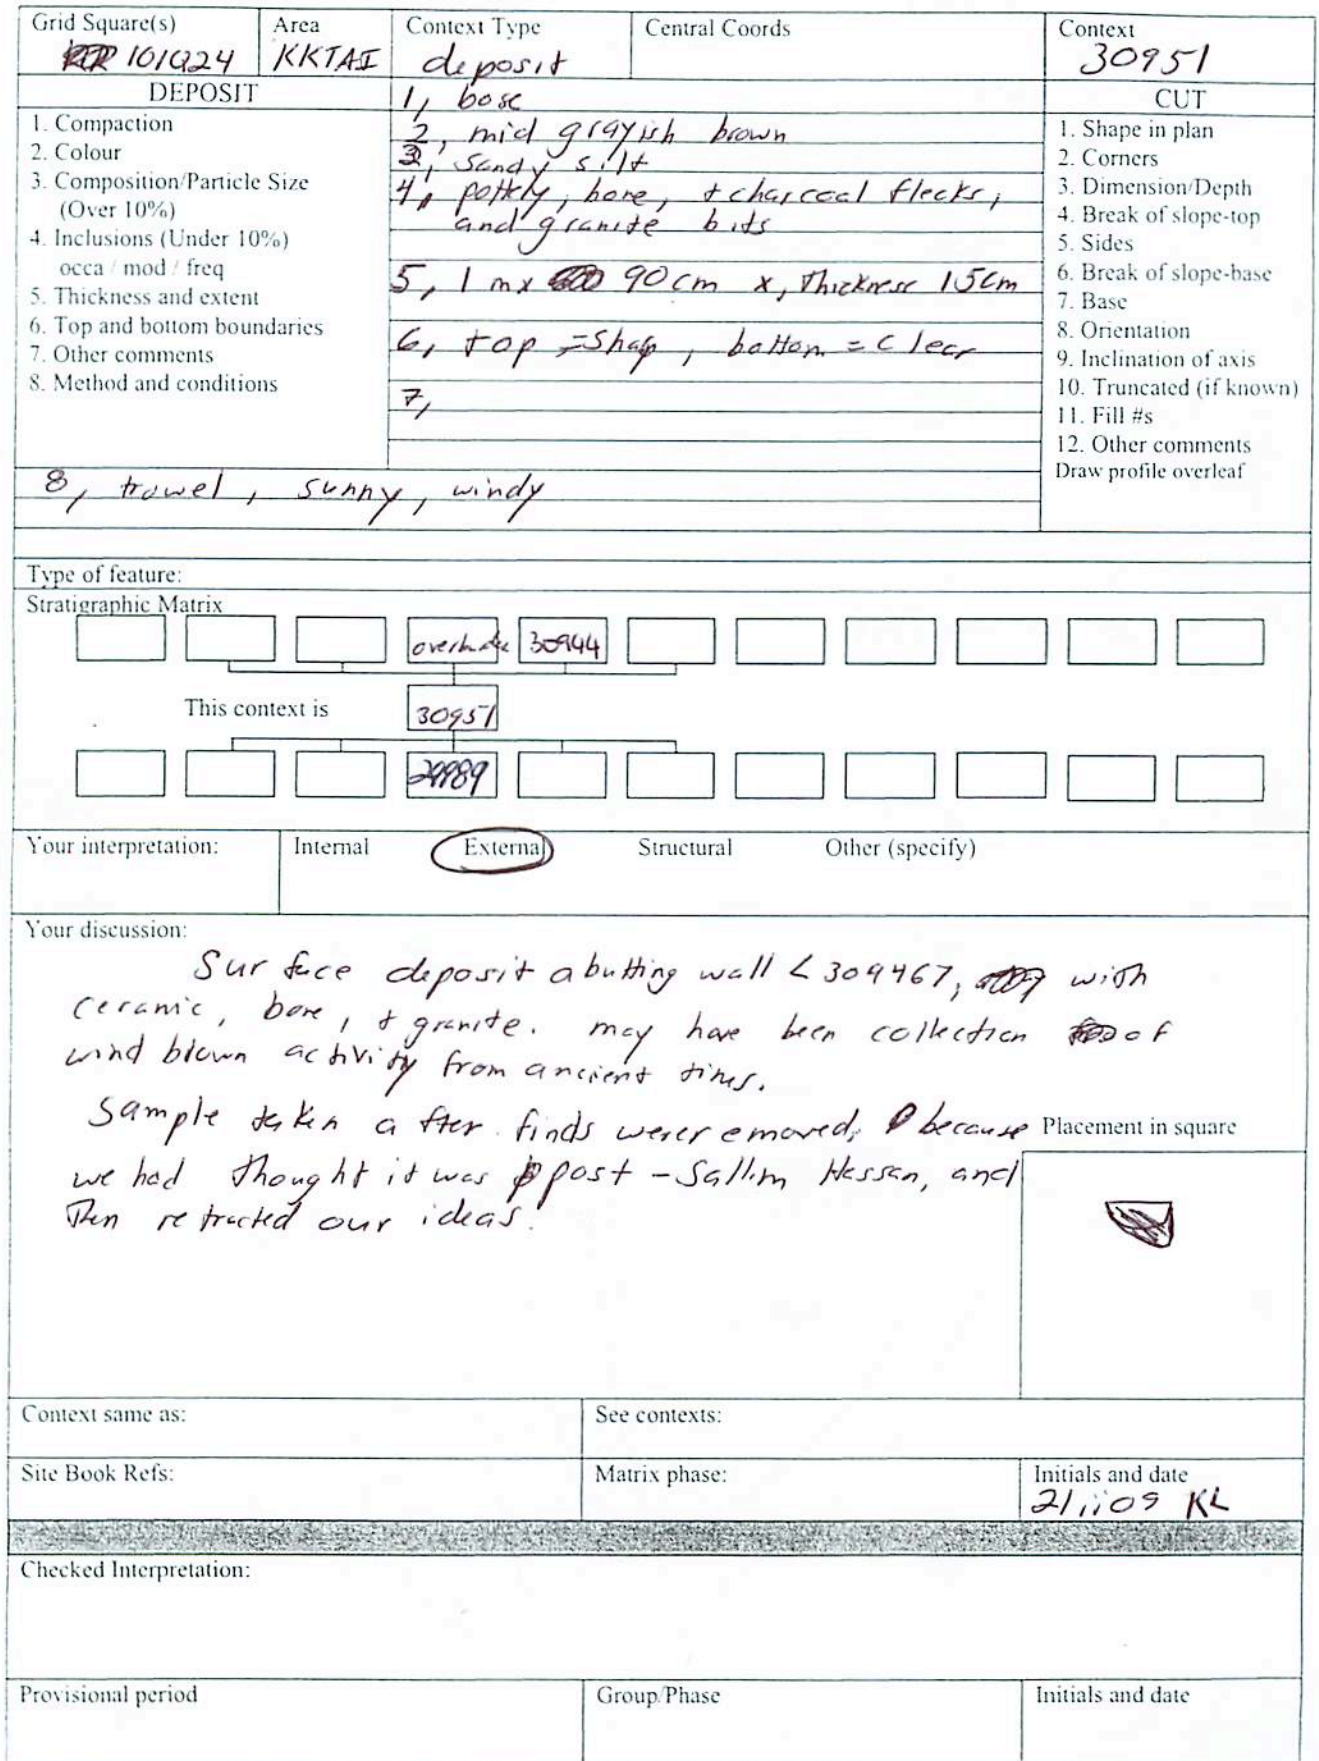 Grid Square(s) Area Context Type Central Coords Context
101Q24 KKTAI deposit 30951
DEPOSIT 1, bose CUT
1. Compaction
2. Colour
3. Composition/Particle Size
(Over 10%)
4. Inclusions (Under 10%)
occa / mod / freq
5. Thickness and extent
6. Top and bottom boundaries
7. Other comments
8. Method and conditions
2, mid grayish brown
3, sandy silt
4, pottery, bone, + charcoal flecks,
and granite bits
5, 1 m x 90 cm x, Thickness 15cm
6, top = sharp, bottom = clear
7,
8, trowel, sunny, windy
1. Shape in plan
2. Corners
3. Dimension/Depth
4. Break of slope-top
5. Sides
6. Break of slope-base
7. Base
8. Orientation
9. Inclination of axis
10. Truncated (if known)
11. Fill #s
12. Other comments
Draw profile overleaf
Type of feature:
Stratigraphic Matrix
30944
This context is 30951
29989
Your interpretation: Internal External Structural Other (specify)
Your discussion:
Surface deposit abutting wall <30946>, with
ceramic, bone, + granite. may have been collection of
wind blown activity from ancient times.
Sample taken after finds were removed, because
we had thought it was post - Sallim Hassan, and
then retracted our ideas.
Placement in square
Context same as: See contexts:
Site Book Refs: Matrix phase: Initials and date
21,ii09 KL
Checked Interpretation:
Provisional period Group/Phase Initials and date